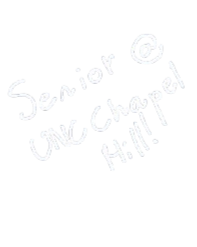 Senior @
UNC Chapel
Hill!